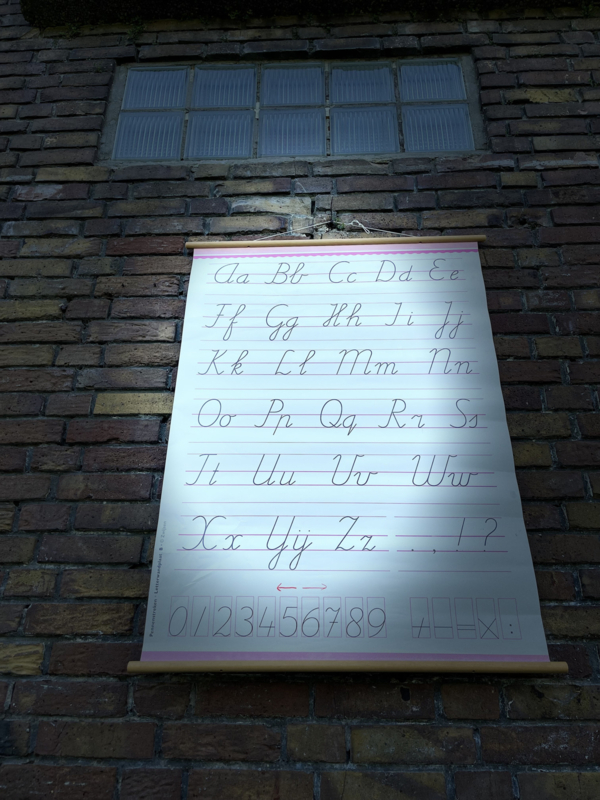 Aa Bb Cc Dd Ee
Ff Gg Hh Ii Jj
Kk Ll Mm Nn
Oo Pp Qq Rr Ss
Tt Uu Vv Ww
Xx Yy ij Zz . , ! ?
← →
0123456789 + - = x :